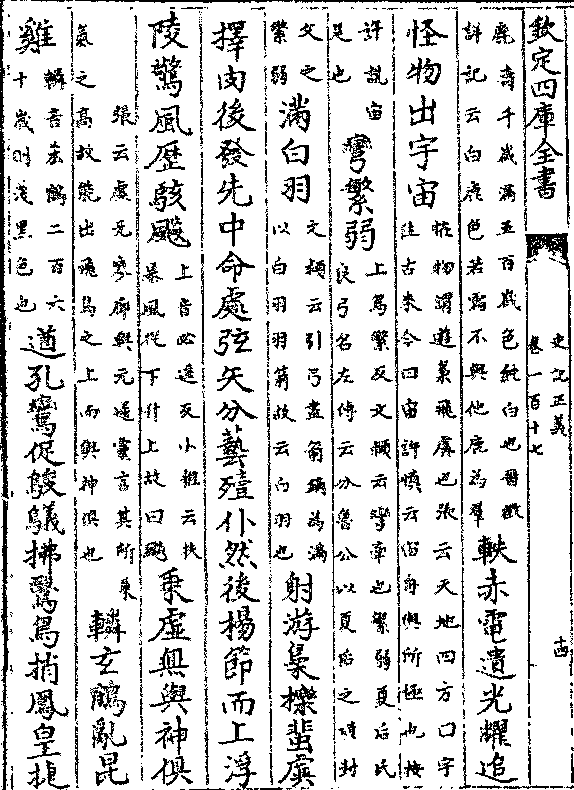 欽定四庫全書
史記正義
卷一百十七
十四
鹿壽千歲滿五百歲色純白也晉徵
詳記云白鹿色若霜不與他鹿為羣
軼赤電遺光耀追
怪物出宇宙
怪物謂遊梟飛虡也張云天地四方曰宇
往古來今曰宙許慎云宙舟輿所極也按
許說宙
是也
彎繁弱
上烏繁反文穎云彎牽也繁弱夏后氏
良弓名左傳云分魯公以夏后之璜封
父之
繁弱
滿白羽
文穎云引弓盡箭鏑為滿
以白羽羽箭故云白羽也
射游梟櫟蜚虡
擇肉後發先中命處弦矢分藝殪仆然後楊節而上浮
陵驚風歴駭飈
上音必遥反小雅云扶
暴風從下升上故曰飈
乘虛無與神俱
張云虛无寥廓與元通靈言其所乘
氣之高故能出飛鳥之上而與神俱也
轔玄鶴亂昆
雞
轔音吝鶴二百六
十歲則淺黑色也
遒孔鸞促鵔鸃拂鷖鳥捎鳳皇捷